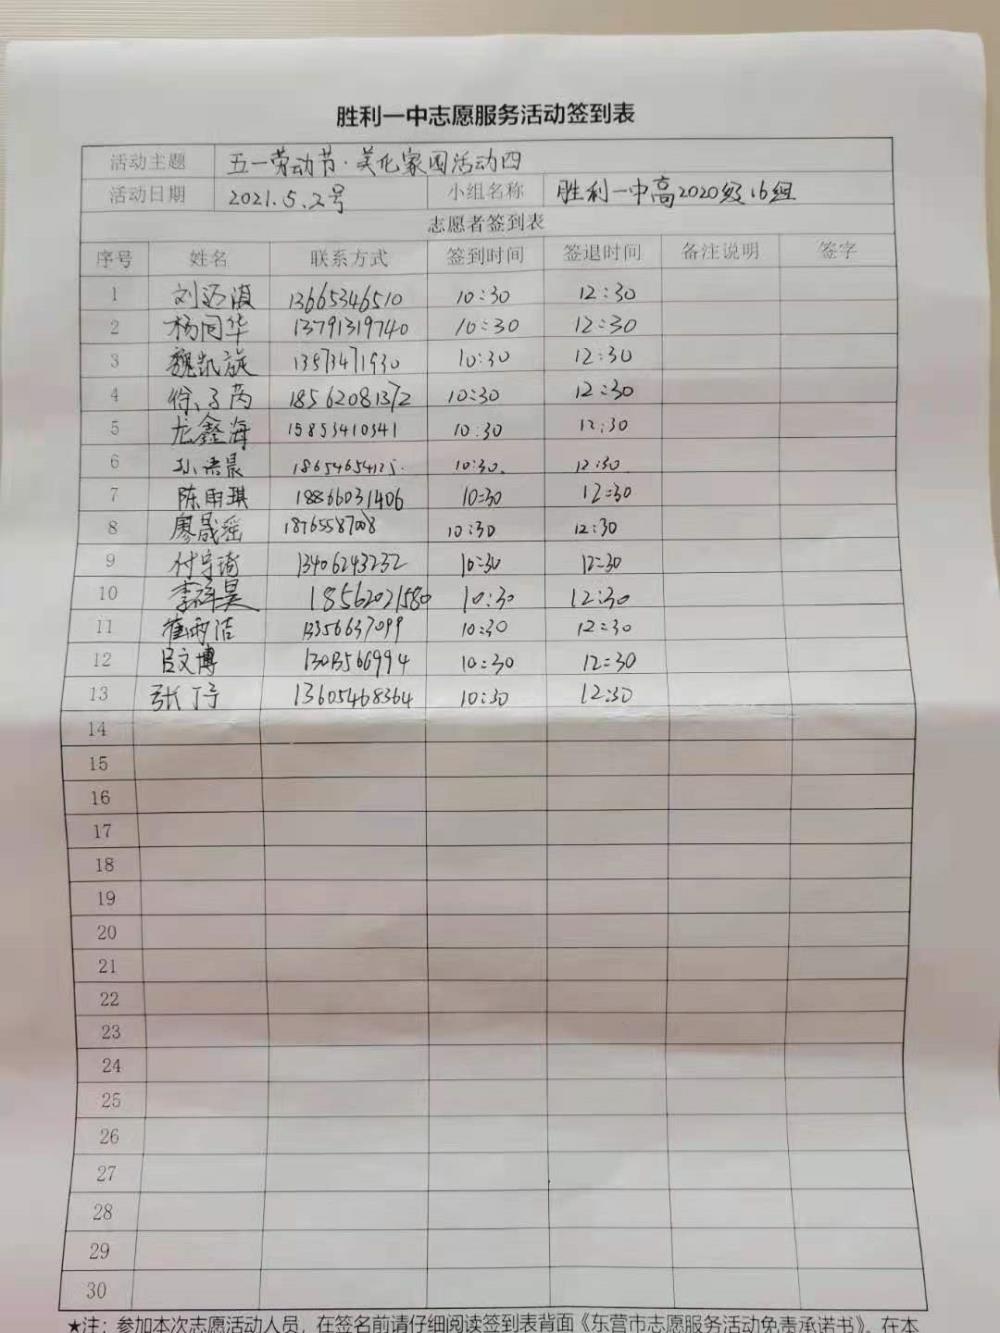 胜利一中志愿服务活动签到表
活动主题 五一劳动节·美化家园活动四
活动日期 2021.5.2号 小组名称 胜利一中高2020级16组
志愿者签到表
序号 姓名 联系方式 签到时间 签退时间 备注说明 签字
1 刘迈浪 13665346510 10:30 12:30
2 杨同华 13791319740 10:30 12:30
3 魏凯旋 13573471930 10:30 12:30
4 徐子芮 18562081372 10:30 12:30
5 龙鑫海 15853410341 10:30 12:30
6 10:30 12:30
7 陈雨琪 18866031406 10:30 12:30
8 廖晟瑶 18765587008 10:30 12:30
9 13406243232 10:30 12:30
10 18562021580 10:30 12:30
11 崔雨洁 13356637099 10:30 12:30
12 吕文博 10:30 12:30
13 13605468364 10:30 12:30
14
15
16
17
18
19
20
21
22
23
24
25
26
27
28
29
30
★注：参加本次志愿活动人员，在签名前请仔细阅读签到表背面《东营市志愿服务活动免责承诺书》，在本